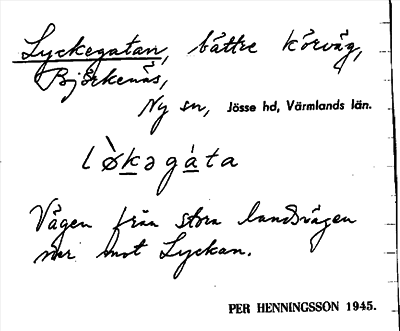 Lyckegatan, bättre körväg,
Björkenäs,
Ny sn, Jösse hd, Värmlands län.
l ǿkəgàta
Vägen från stora landsvägen
ner mot Lyckan.
PER HENNINGSSON 1945.